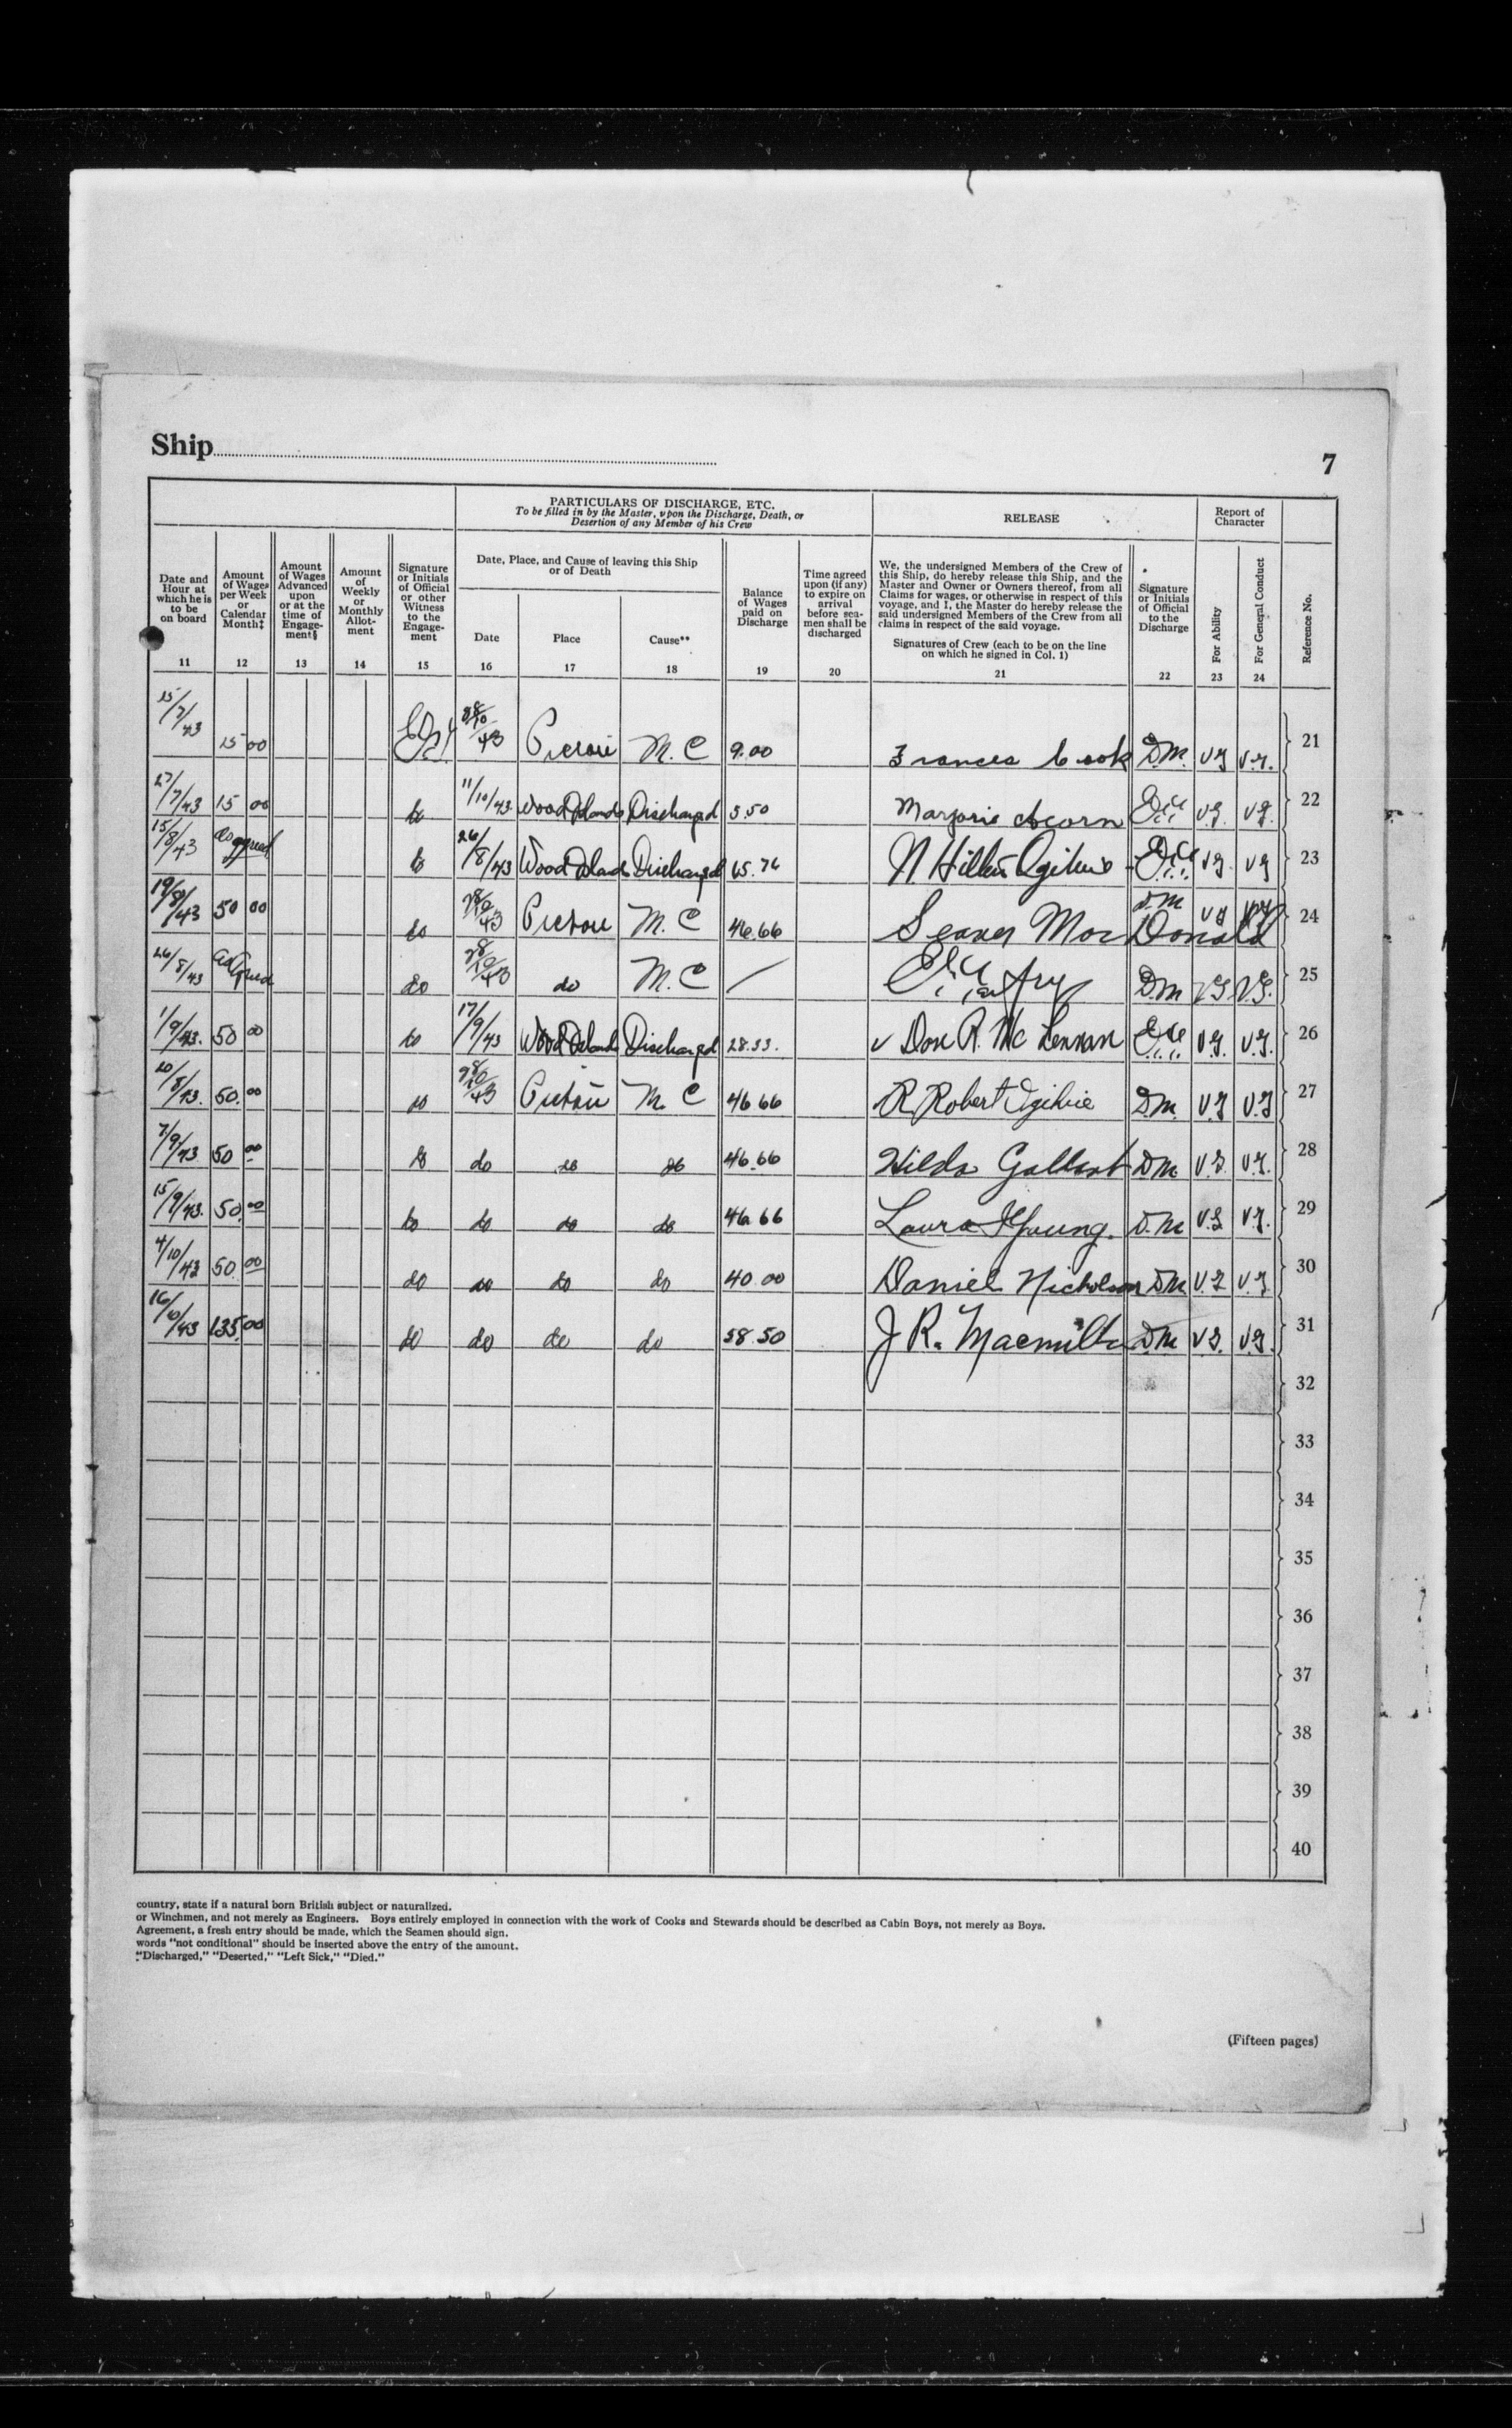 Ship
7
PARTICULARS OF DISCHARGE, ETC.
To be filled in by the Master, upon the Discharge, Death, or
Desertion of any Member of his Crew
RELEASE
Report of
Character
Date and
Hour at
which he is
to be
on board
Amount
of Wages
per Week
or
Calendar
Month‡
Amount
of Wages
Advanced
upon
or at the
time of
Engage-
ment§
Amount
of
Weekly
or
Monthly
Allot-
ment
Signature
or Initials
of Official
or other
Witness
to the
Engage-
ment
Date, Place, and Cause of leaving this Ship
or of Death
Date
Place
Cause**
Balance
of Wages
paid on
Discharge
Time agreed
upon (if any)
to expire on
arrival
before sea-
men shall be
discharged
We, the undersigned Members of the Crew of
this Ship, do hereby release this Ship, and the
Master and Owner or Owners thereof, from all
Claims for wages, or otherwise in respect of this
voyage, and I, the Master do hereby release the
said undersigned Members of the Crew from all
claims in respect of the said voyage.
Signatures of Crew (each to be on the line
on which he signed in Col. 1)
Signature
or Initials
of Official
to the
Discharge
For Ability
For General Conduct
Reference No.
11 12 13 14 15 16 17 18 19 20 21 22 23 24
15/7/43 15 00 28/10/43 Pictou M.C 9.00 Frances Cook D.M. V.G V.G. 21
27/7/43 15 00 do 11/10/43 Wood Islands Discharged 3.50 Marjorie Acorn V.G. V.G. 22
15/8/43 as agreed do 26/8/43 Wood Islands Discharged 65.76 N. Ogilvie V.G. V.G 23
19/8/43 50 00 do 28/10/43 Pictou M.C 46.66 MacDonald D.M V.G V.G 24
26/8/43 as Agreed do 28/10/43 do M.C D.M V.G V.G. 25
1/9/43. 50 00 do 17/9/43 Wood Islands Discharged 28.33. Don R. McLennan V.G. V.G. 26
20/8/43. 50. 00 do 28/10/43 Pictou M.C 46 66 R Robert Ogilvie D.M. V.G V.G 27
7/9/43 50 00 do do do do 46.66 Hilda Gallant D.M. V.G. V.G. 28
15/9/43. 50. 00 do do do do 46 66 Laura Young. D.M V.G V.G. 29
4/10/43 50 00 do do do do 40 00 Daniel Nicholson D.M V.G V.G 30
16/10/43 135. 00 do do do do 58.50 J R. Macmillan D.M V.G. V.G. 31
32
33
34
35
36
37
38
39
40
country, state if a natural born British subject or naturalized.
or Winchmen, and not merely as Engineers. Boys entirely employed in connection with the work of Cooks and Stewards should be described as Cabin Boys, not merely as Boys.
Agreement, a fresh entry should be made, which the Seamen should sign.
words "not conditional" should be inserted above the entry of the amount.
"Discharged," "Deserted," "Left Sick," "Died."
(Fifteen pages)